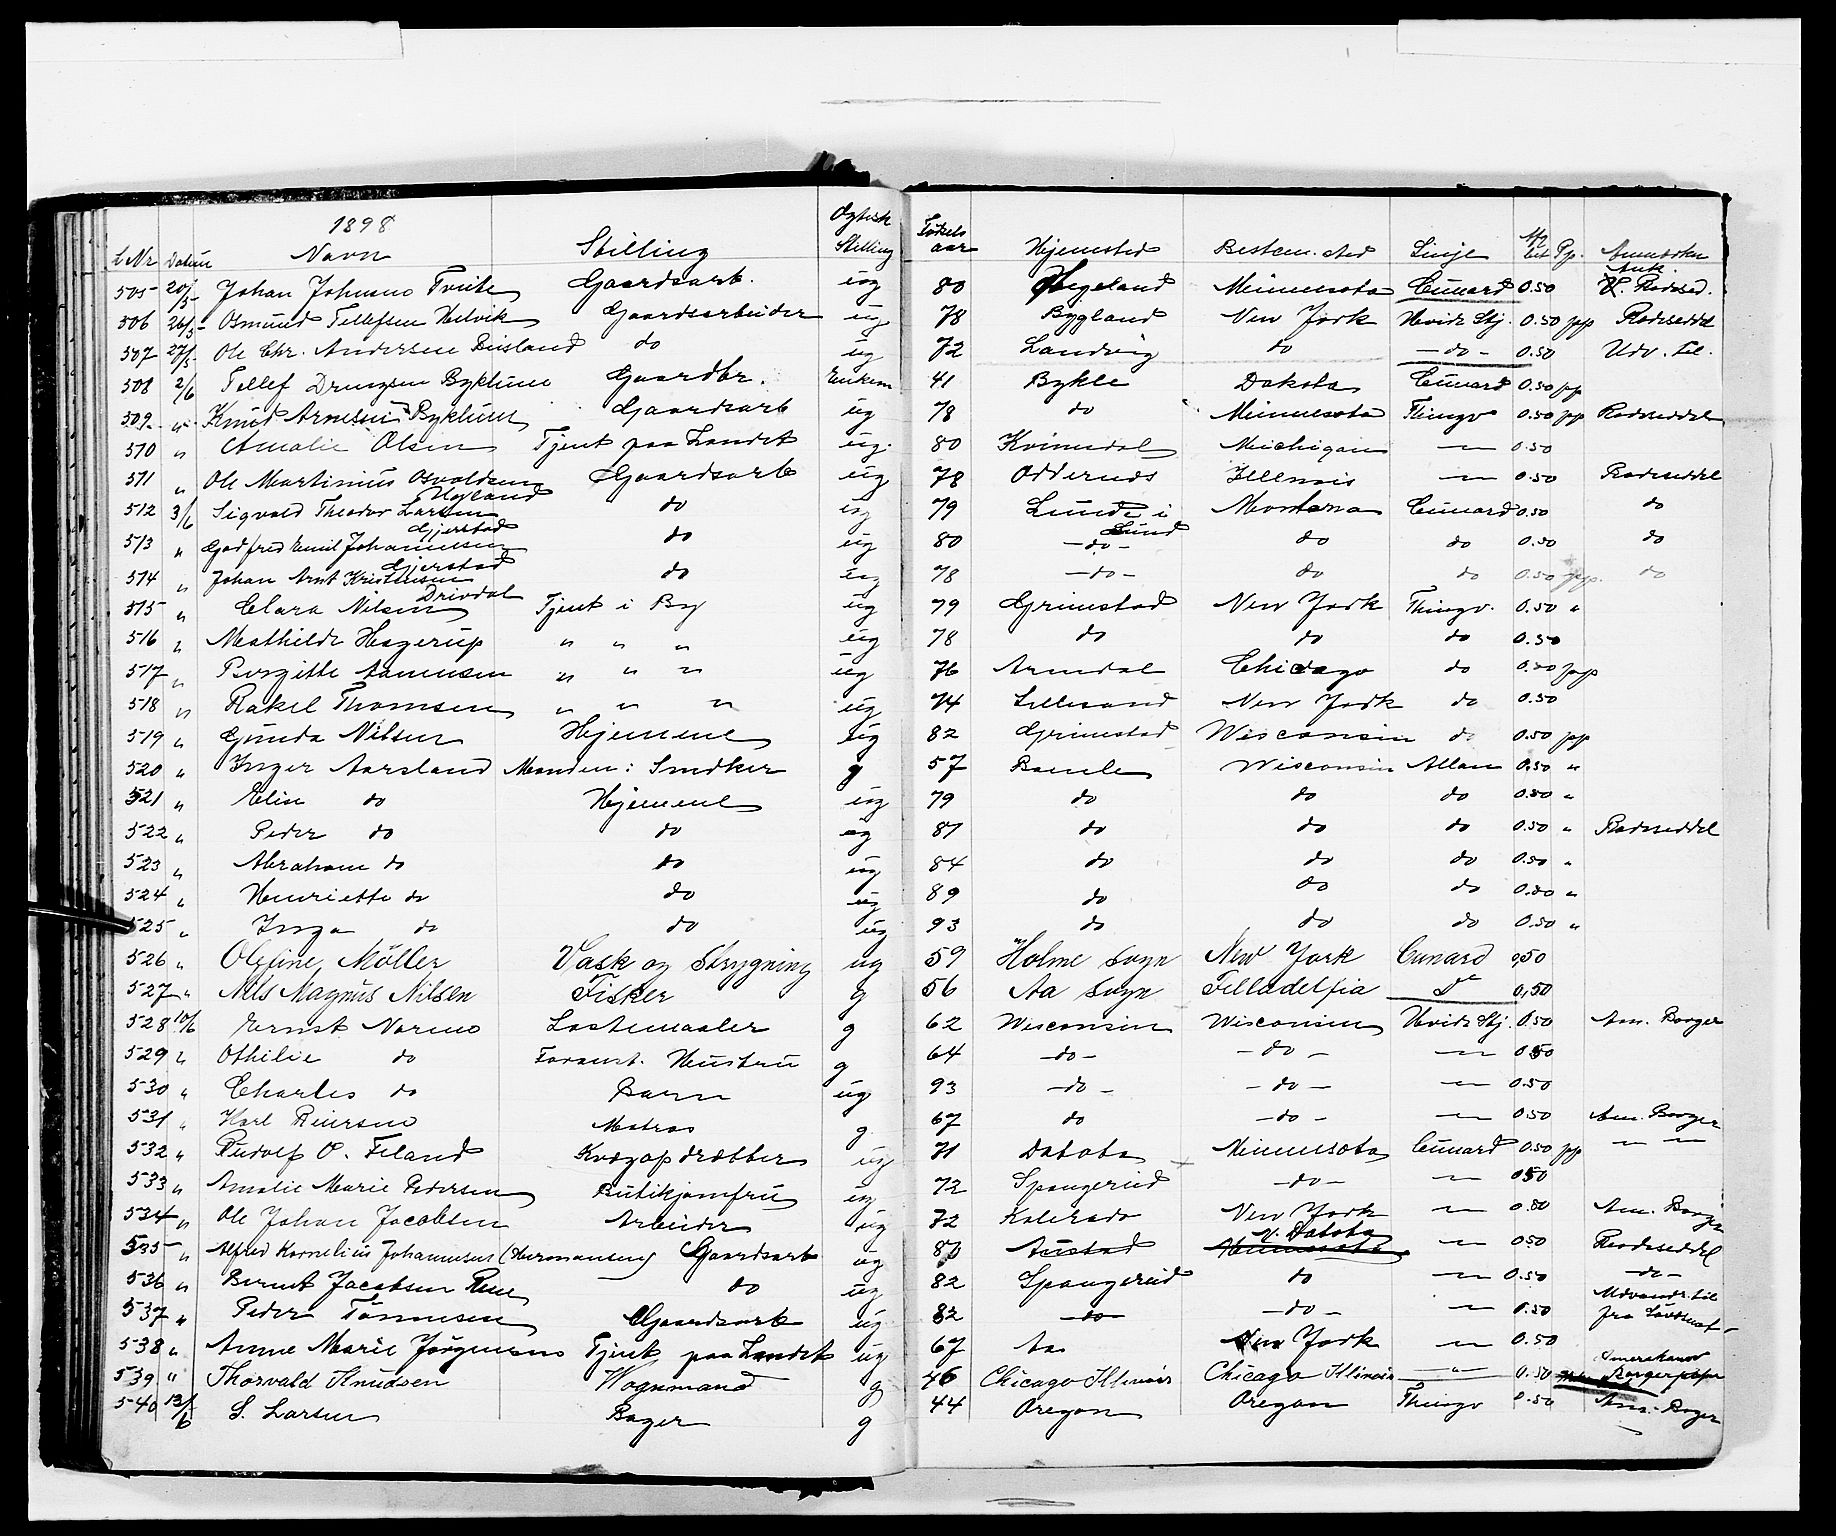 1898
L Nr Datum Navn Stilling Ægtesk Stilling Fødsels aar Hjemsted Bestem. sted Linje Pp.
505 20/5 Johan Johnsen Gaardsarb. ug 80 Hegeland Minnesota Cunard 0.50 Rodesed.
506 26/5 Osmund Tellefsen Gaardsarbeider ug 78 Bygland New York Hvide Stj. 0.50 pp Rodeseddel
507 27/5 Ole Chr. Andersen do ug 72 Landvig do - do - 0.50 Udv. til.
508 2/6 Tellef Byklum Gaardbr. Enkem 41 Bykle Dakota Cunard 0.50 pp
509 " Knud Arnesen Byklum Gaardsarb ug 78 do Minnesota Thingv 0.50 pp Rodeseddel
510 " Amalie Olsen Tjent paa Landet ug. 80 Kvinesdal Michigan — " — 0.50
511 " Ole Martinius Osvaldsen Gaardsarb ug 78 Oddernes Illenois — " — 0.50 Rodeseddel
512 3/6 Sigvald Theodor Larsen Høyland do ug 79 Lunde i Lund Montana Cunard 0.50 do
513 " Godfred Emil Johannesen Gjerstad do ug 80 - do - do do 0.50 do
514 " Johan Arnt Kristensen Gjerstad do ug 78 - do - do do 0.50 pp. do
515 " Clara Nilsen Drivdal Tjent i By ug 79 Grimstad New York Thingv. 0.50 "
516 " Mathilde Hagerup " " " ug 78 do do do 0.50
517 " Borgitte Aanensen " " " ug 76 Arendal Chicago do 0.50 pp
518 " Rakel Thomsen " " " ug 74 Lillesand New York do 0.50
519 " Gunda Nilsen Hjemme ug 82 Grimstad Wisconsin do 0.50 pp
520 " Inger Aarsland Manden: Snedker g 57 Bamle Wisconsin Allan 0.50 "
521 " Elise do Hjemme ug 79 do do do 0.50 "
522 " Peder do do ug 81 do do do 0.50 " Rodeseddel
523 " Abraham do do ug 84 do do do 0.50 "
524 " Henriette do do ug 89 do do do 0.50 "
525 " Inga do do ug 93 do do do 0.50 "
526 " Olefine Möller Vask og Strygning ug 59 Holme Sogn New York Cunard 0,50
527 " Nils Magnus Nilsen Fisker g 56 Aa Sogn Filladelfia Do 0,50
528 10/6 Ernst g 62 Wisconsin Wisconsin Hvide Stj. 0.50 Am. Borger
529 " Othilie do Hustru g 64 - do - - do - — " — 0.50
530 " Charles do Barn ug 93 - do - - do - — " — 0.50
531 " Karl Reiersen Matros g 67 do - do - — " — 0.50 Am. Borger
532 " Rudolf O. Feland Kvægopdrætter ug 71 Dakota Minnesota Cunard 0.50 pp — " —
533 " Amalie Marie Pedersen Butikjomfru ug 72 Spangereid - do - — " — 0.50
534 " Ole Johan Jacobsen Arbeider ug 72 Kolerado New York — " — 0.50 Am. Borger
535 " Alfred Kornelius Johannesen (Hermansen) Gaardsarb ug 80 Austad N. Dakota Minnesota — " — 0.50 Rodeseddel
536 " Bernt Jacobsen do ug 82 Spangereid do — " — 0.50 - do -
537 " Peder Tönnesen Gaardsarb ug 82 - do - - do - — " — 0.50 Udvandr. til fra
538 " Anne Marie Jørgensen Tjent paa Landet ug 67 Aa New York — " — 0.50
539 " Thorvald Knudsen Vognmand g 46 Chicago Illinois Chicago Illinois — " — 0.50 Amerikansk Borgerpapir
540 13/6 S. Larsen Bager g 44 Oregon Oregon Thingv 0.50 Am. Borger